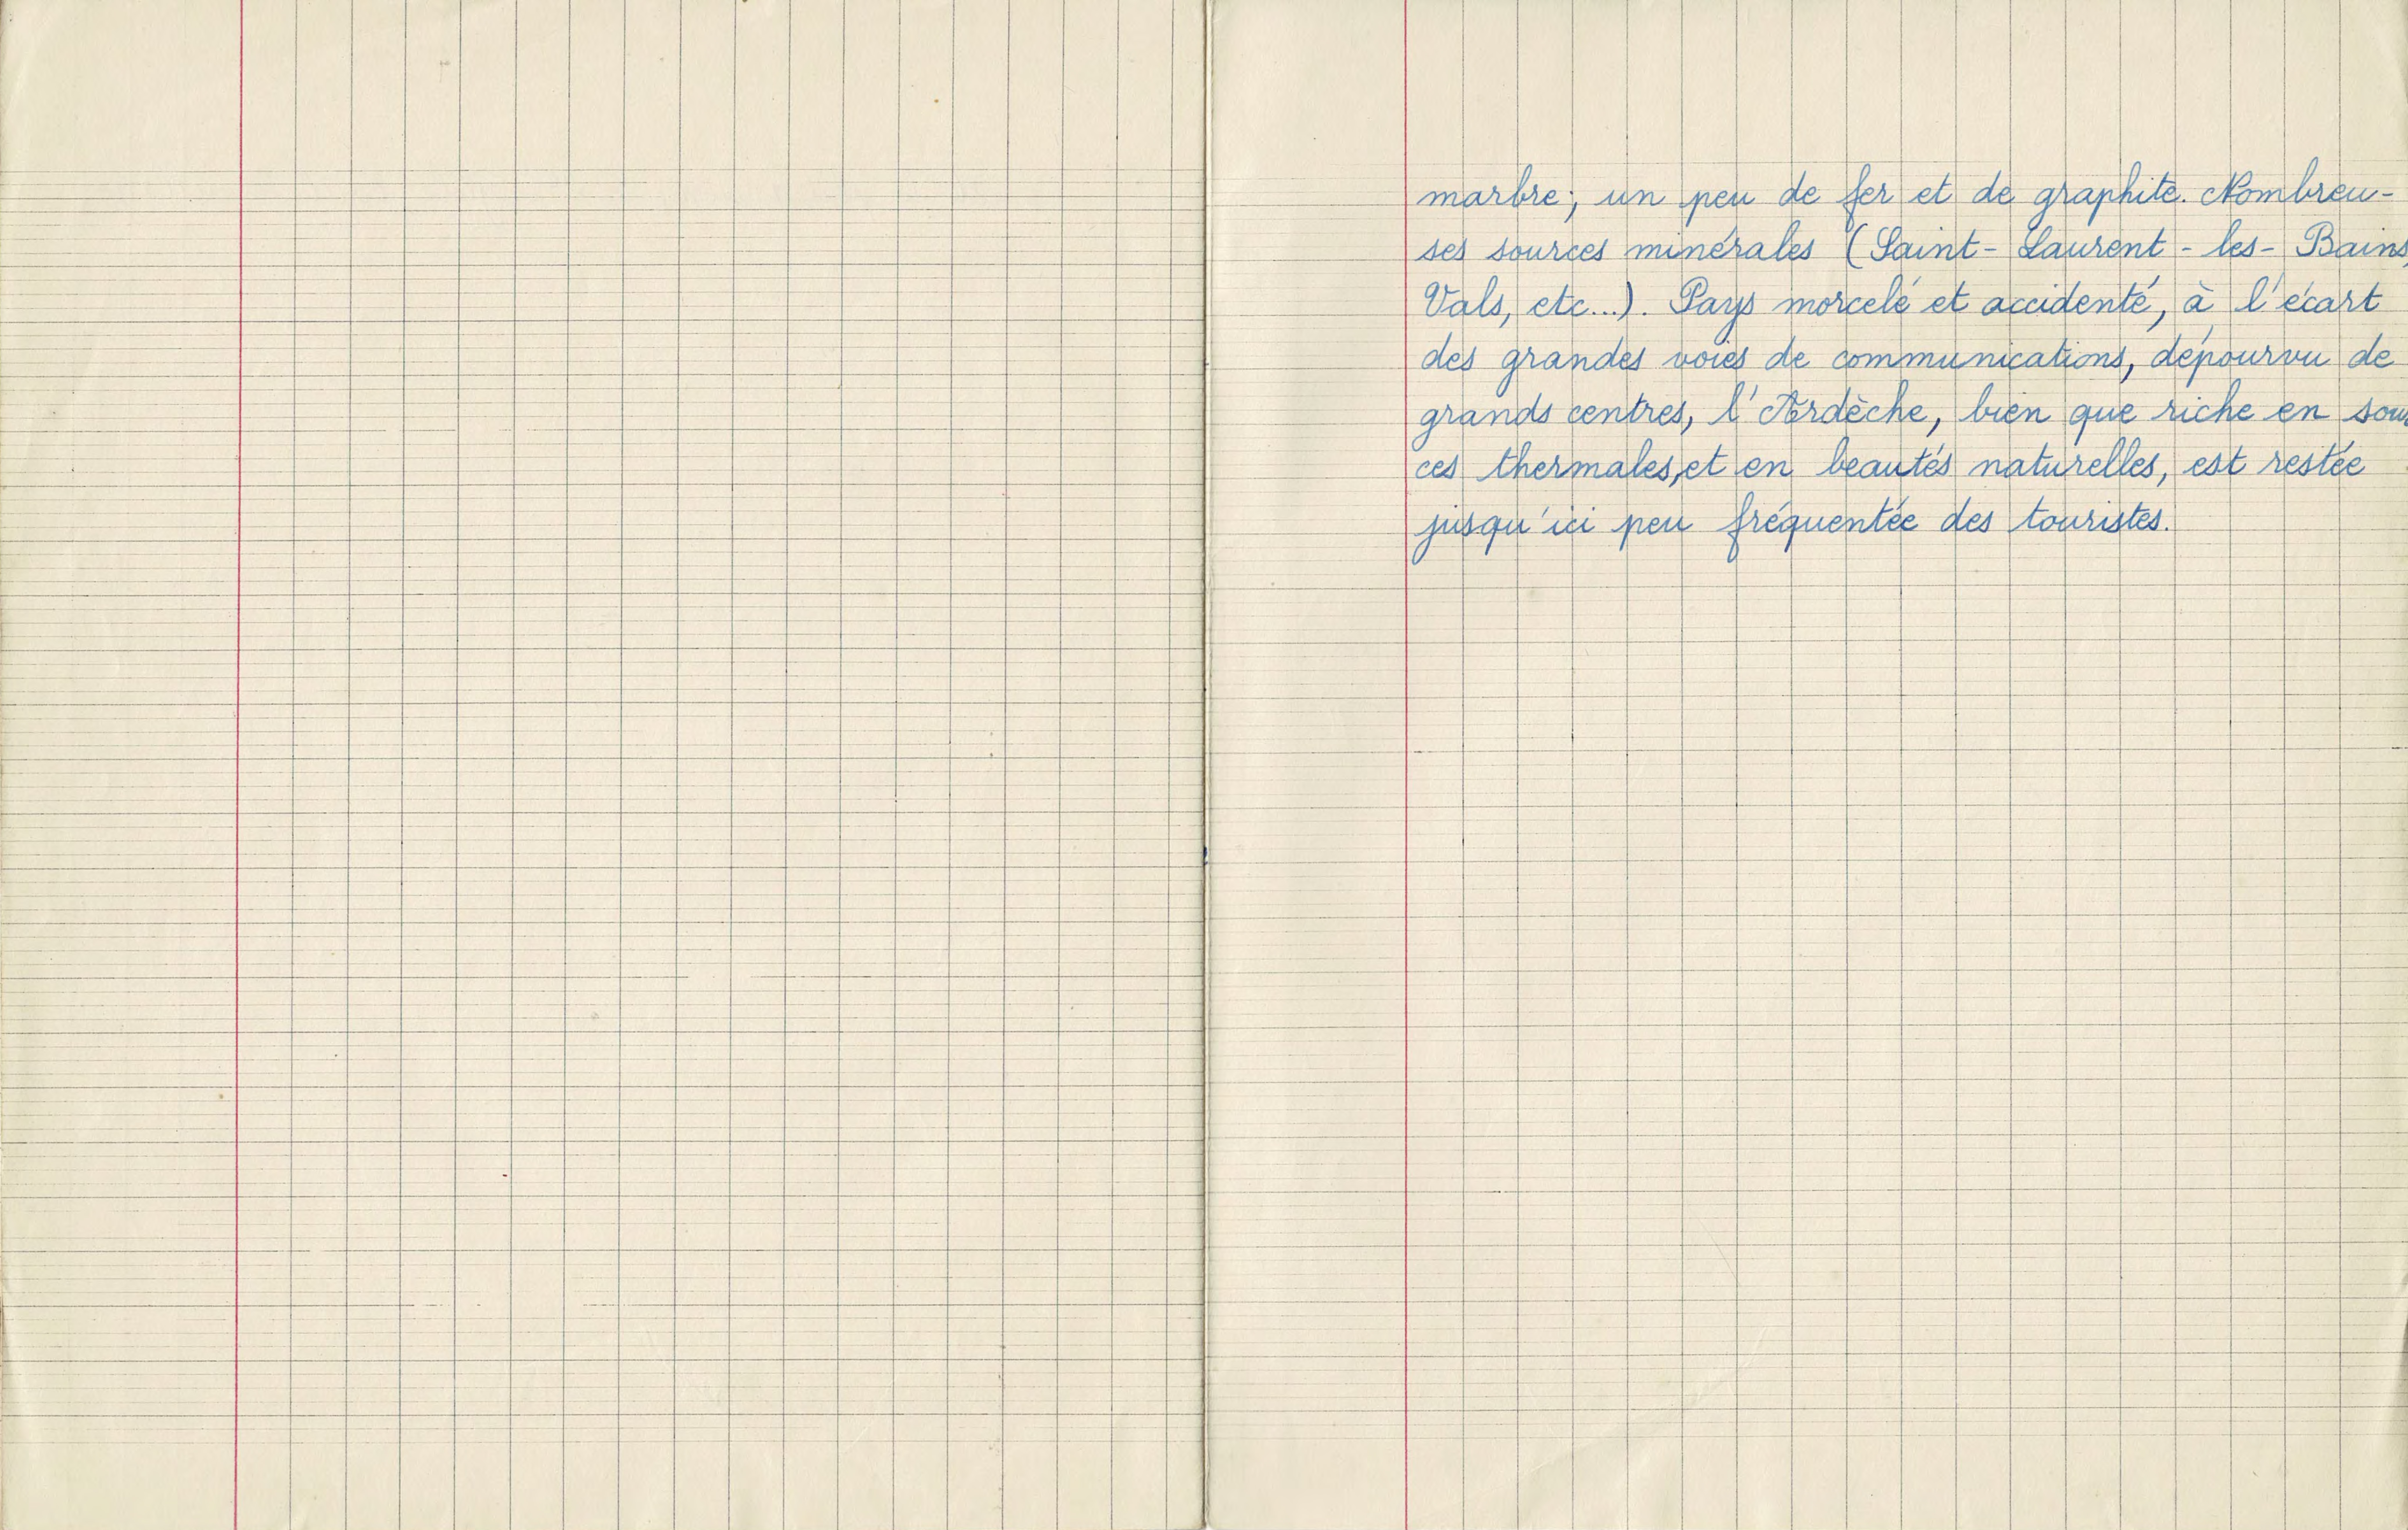 marbre; un peu de fer et de graphite. Nombreu-
ses sources minérales (Saint-Laurent-les-Bains,
Vals, etc...). Pays morcelé et accidenté, à l'écart
des grandes voies de communications, dépourvu de
grands centres, l'Ardèche, bien que riche en sour
ces thermales, et en beautés naturelles, est restée
jusqu'ici peu fréquentée des touristes.